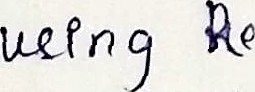 using Re